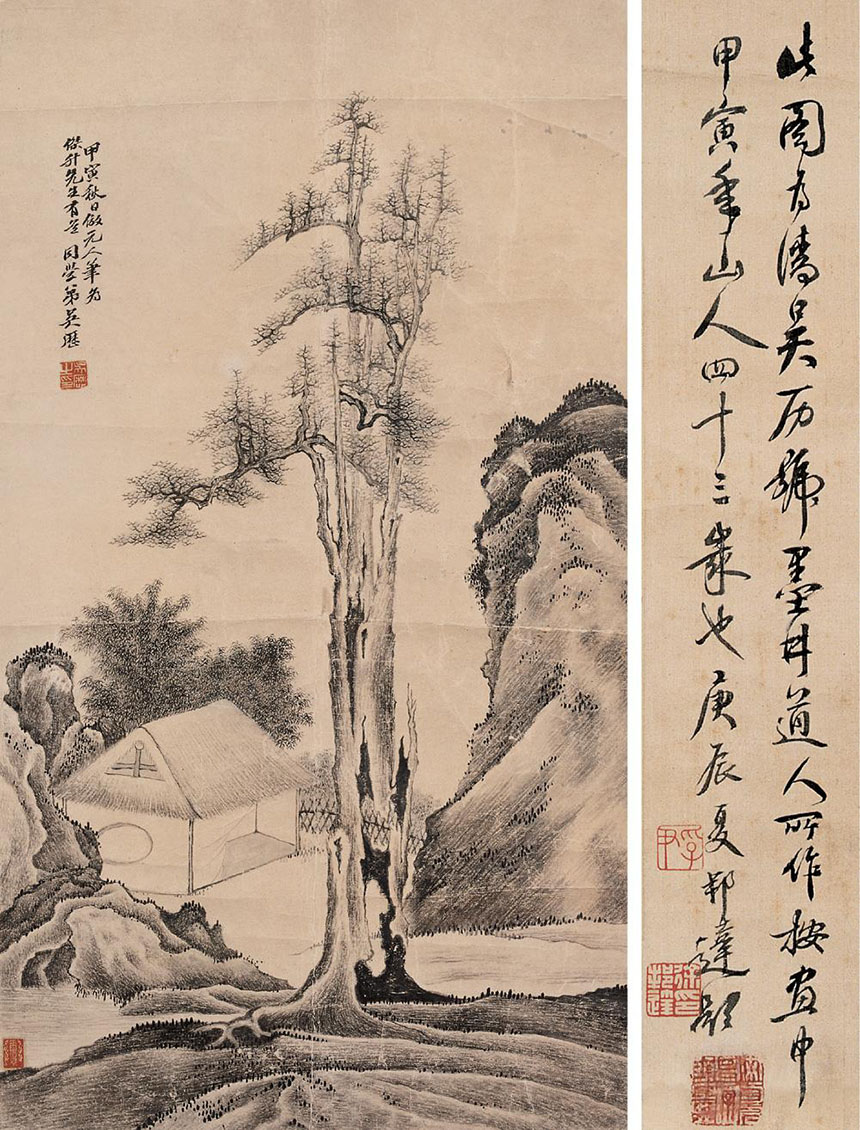 甲寅秋日倣元人筆為
傑升先生有道 同學弟吳歷
此圖为清吴历號墨井道人所作按画中
甲寅年山人四十三歲也庚辰夏邦達題
孚尹